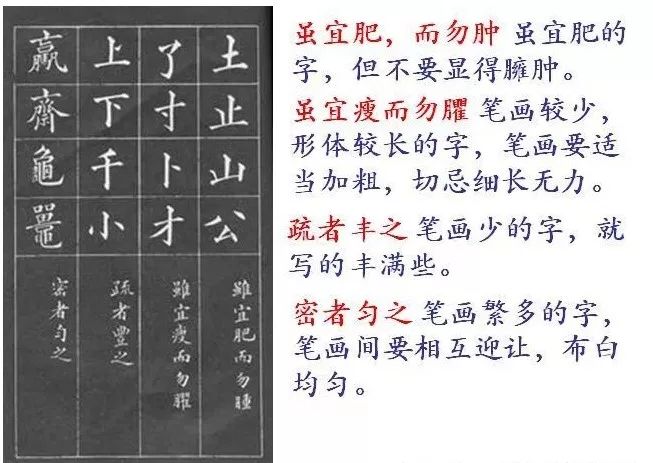 土止山公
雖宜肥而勿腫
了寸卜才
雖宜瘦而勿臞
上下千小
疏者豐之
齋龜鼉
密者匀之
虽宜肥，而勿肿 虽宜肥的
字，但不要显得臃肿。
虽宜瘦而勿臞 笔画较少，
形体较长的字，笔画要适
当加粗，切忌细长无力。
疏者丰之 笔画少的字，就
写的丰满些。
密者匀之 笔画繁多的字，
笔画间要相互迎让，布白
均匀。